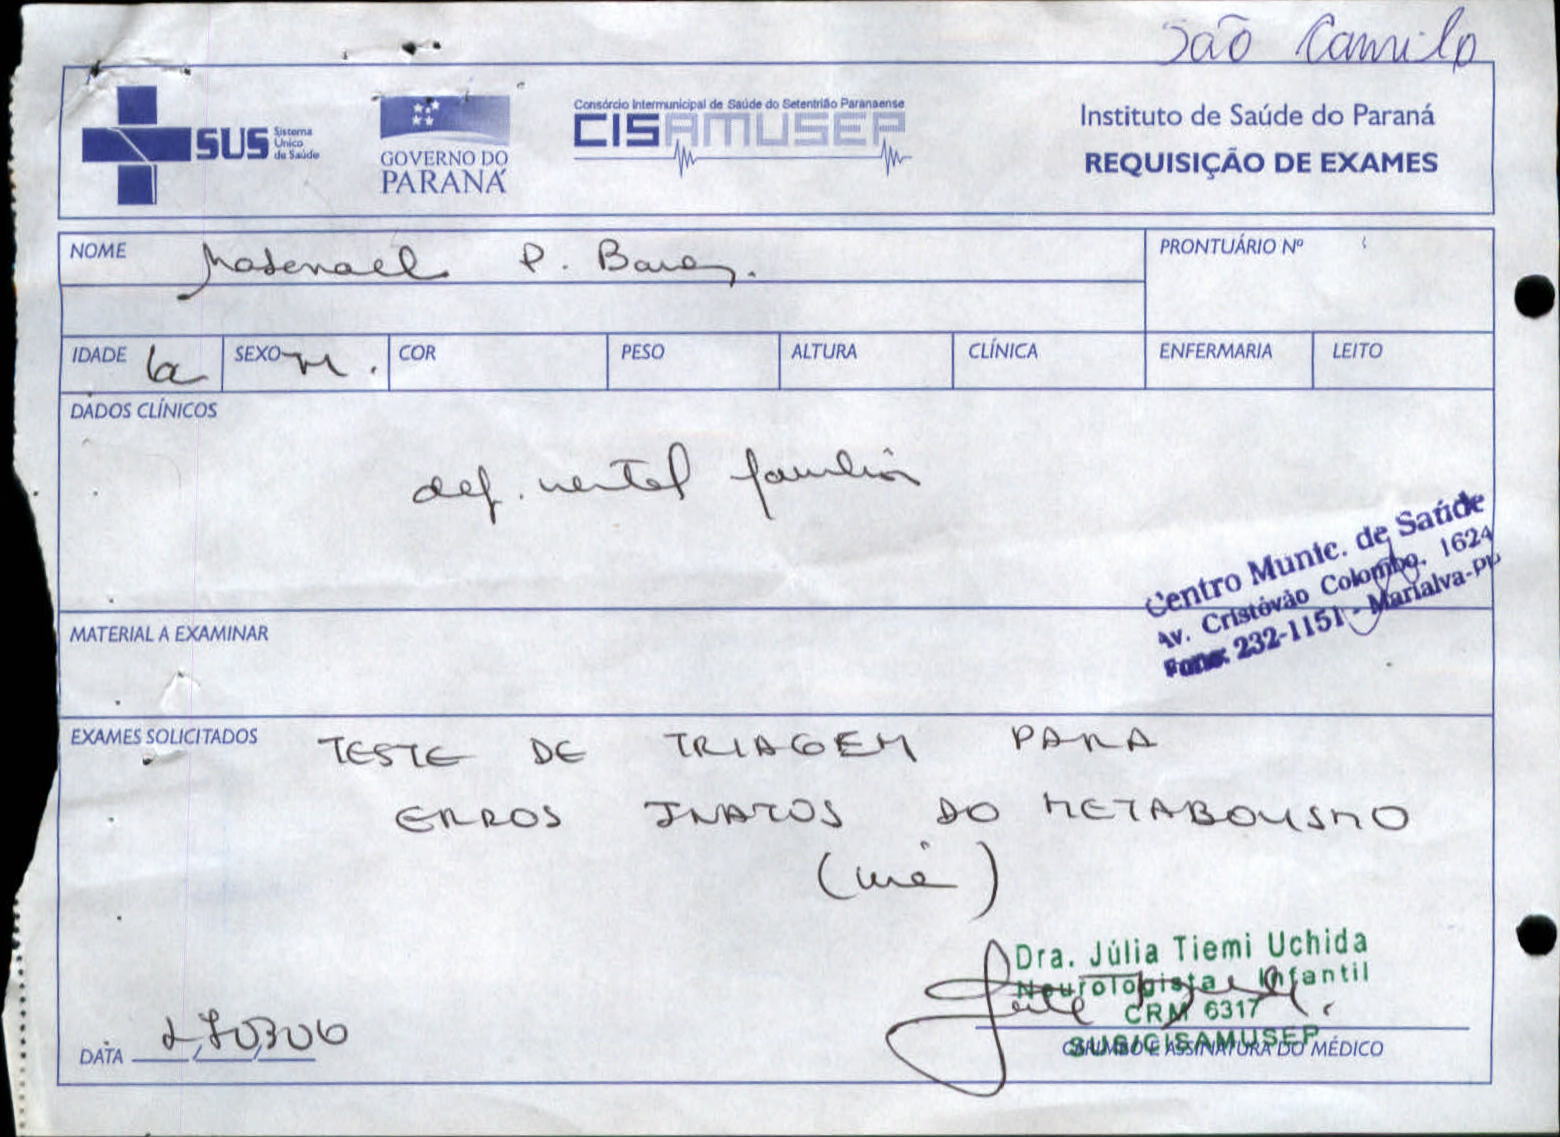 São Camilo
SUS Sistema Único de Saúde
GOVERNO DO PARANÁ
Consórcio Intermunicipal de Saúde do Setentrião Paranaense
CISAMUSEP
Instituto de Saúde do Paraná
REQUISIÇÃO DE EXAMES
NOME P.
PRONTUÁRIO Nº
IDADE 6a SEXO M. COR PESO ALTURA CLÍNICA ENFERMARIA LEITO
DADOS CLÍNICOS
def. mental familiar
Centro Munic. de Saúde
Av. Cristóvão Colombo, 1624
Fone: 232-1151 - Marialva-PR
MATERIAL A EXAMINAR
EXAMES SOLICITADOS TESTE DE TRIAGEM PARA
ERROS INATOS DO METABOLISMO
Dra. Júlia Tiemi Uchida
Neurologista Infantil
CRM 6317
SUS/CISAMUSEP
DATA 270306
CARIMBO E ASSINATURA DO MÉDICO